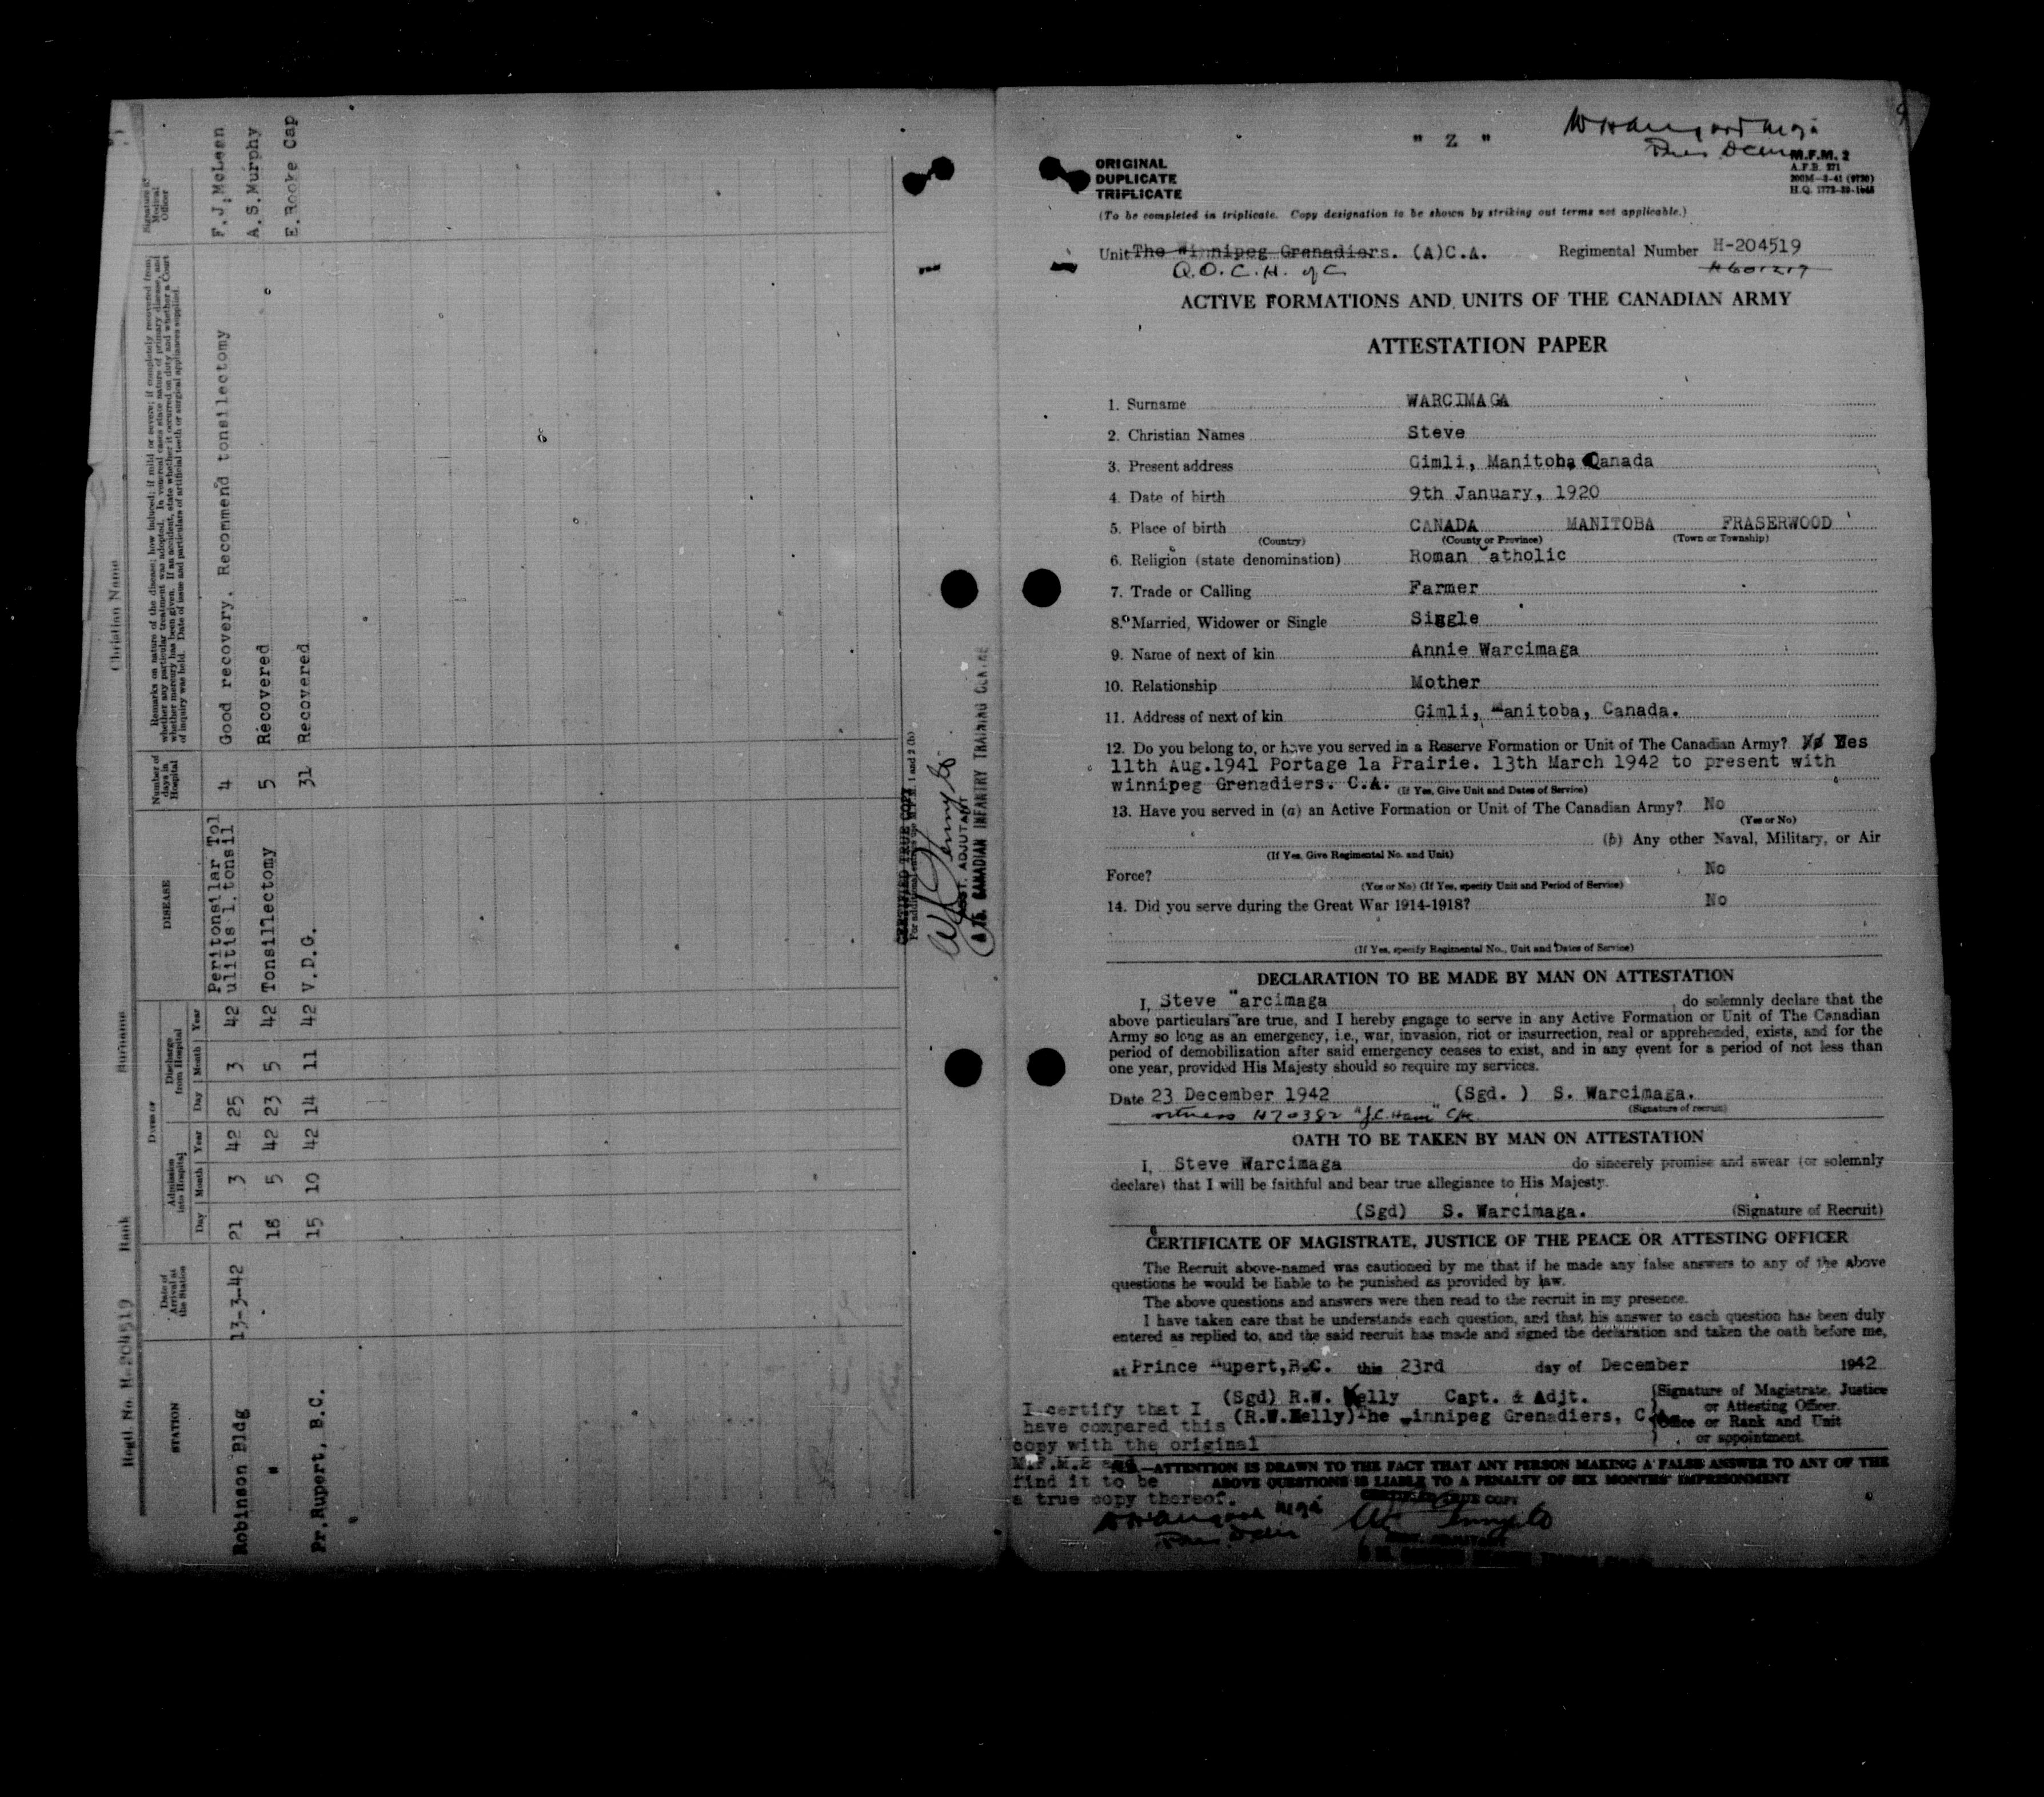 Regtl. No. H-204519 Rank Surname Christian Name
STATION
Date of Arrival at the Station
Dates of
Admission into Hospital
Discharge from Hospital
Day Month Year Day Month Year
DISEASE
Number of days in Hospital
Remarks on nature of the disease; how induced; if mild or severe; if completely recovered from;
whether any particular treatment was adopted. In venereal cases state nature of primary disease, and
whether mercury has been given. If an accident, state whether it occurred on duty and whether a Court
of inquiry was held. Date of issue and particulars of artificial teeth or surgical appliances supplied.
Signature of Medical Officer
Robinson Bldg 13-3-42 21 3 42 25 3 42 Peritonsilar Tol 4 Good recovery. Recommend tonsilectomy F.J. McLean
ulitis l. tonsil
" 18 5 42 23 5 42 Tonsillectomy 5 Recovered A.S.Murphy
Pr.Rupert, B.C. 15 10 42 14 11 42 V.D.G. 31 Recovered E. Rooke Cap
CERTIFIED TRUE COPY
ASST. ADJUTANT
A.15. CANADIAN INFANTRY TRAINING CENTRE
" Z "
ORIGINAL
DUPLICATE
TRIPLICATE
M.F.M. 2
A.F.B. 271
200M-2-41 (9720)
H.Q. 1772-39-1948
(To be completed in triplicate. Copy designation to be shown by striking out terms not applicable.)
Unit The Winnipeg Grenadiers. (A)C.A. Regimental Number H-204519
Q.O.C.H. of C H601217
ACTIVE FORMATIONS AND UNITS OF THE CANADIAN ARMY
ATTESTATION PAPER
1. Surname WARCIMAGA
2. Christian Names Steve
3. Present address Gimli, Manitoba Canada
4. Date of birth 9th January, 1920
5. Place of birth CANADA MANITOBA FRASERWOOD
(Country) (County or Province) (Town or Township)
6. Religion (state denomination) Roman Catholic
7. Trade or Calling Farmer
8. Married, Widower or Single Single
9. Name of next of kin Annie Warcimaga
10. Relationship Mother
11. Address of next of kin Gimli, Manitoba, Canada.
12. Do you belong to, or have you served in a Reserve Formation or Unit of The Canadian Army? No Yes
11th Aug.1941 Portage la Prairie. 13th March 1942 to present with
winnipeg Grenadiers. C.A. (If Yes, Give Unit and Dates of Service)
13. Have you served in (a) an Active Formation or Unit of The Canadian Army? No
(Yes or No)
(b) Any other Naval, Military, or Air
(If Yes, Give Regimental No. and Unit)
Force? No
(Yes or No) (If Yes, specify Unit and Period of Service)
14. Did you serve during the Great War 1914-1918? No
(If Yes, specify Regimental No., Unit and Dates of Service)
DECLARATION TO BE MADE BY MAN ON ATTESTATION
I, Steve Warcimaga, do solemnly declare that the
above particulars are true, and I hereby engage to serve in any Active Formation or Unit of The Canadian
Army so long as an emergency, i.e., war, invasion, riot or insurrection, real or apprehended, exists, and for the
period of demobilization after said emergency ceases to exist, and in any event for a period of not less than
one year, provided His Majesty should so require my services.
Date 23 December 1942 (Sgd. ) S. Warcimaga.
(Signature of recruit)
witness H70382 "J.C. Ham"
OATH TO BE TAKEN BY MAN ON ATTESTATION
I, Steve Warcimaga do sincerely promise and swear (or solemnly
declare) that I will be faithful and bear true allegiance to His Majesty.
(Sgd) S. Warcimaga. (Signature of Recruit)
CERTIFICATE OF MAGISTRATE, JUSTICE OF THE PEACE OR ATTESTING OFFICER
The Recruit above-named was cautioned by me that if he made any false answers to any of the above
questions he would be liable to be punished as provided by law.
The above questions and answers were then read to the recruit in my presence.
I have taken care that he understands each question, and that his answer to each question has been duly
entered as replied to, and the said recruit has made and signed the declaration and taken the oath before me,
at Prince Rupert,B.C. this 23rd day of December 1942
(Sgd) R.W. Kelly Capt. & Adjt. Signature of Magistrate, Justice
or Attesting Officer.
(R.W.Kelly)The Winnipeg Grenadiers, C.A. Office or Rank and Unit
or appointment.
I certify that I
have compared this
copy with the original
M.F.M.2 and
find it to be
a true copy thereof.
N.B.—ATTENTION IS DRAWN TO THE FACT THAT ANY PERSON MAKING A FALSE ANSWER TO ANY OF THE
ABOVE QUESTIONS IS LIABLE TO A PENALTY OF SIX MONTHS' IMPRISONMENT
CERTIFIED TRUE COPY